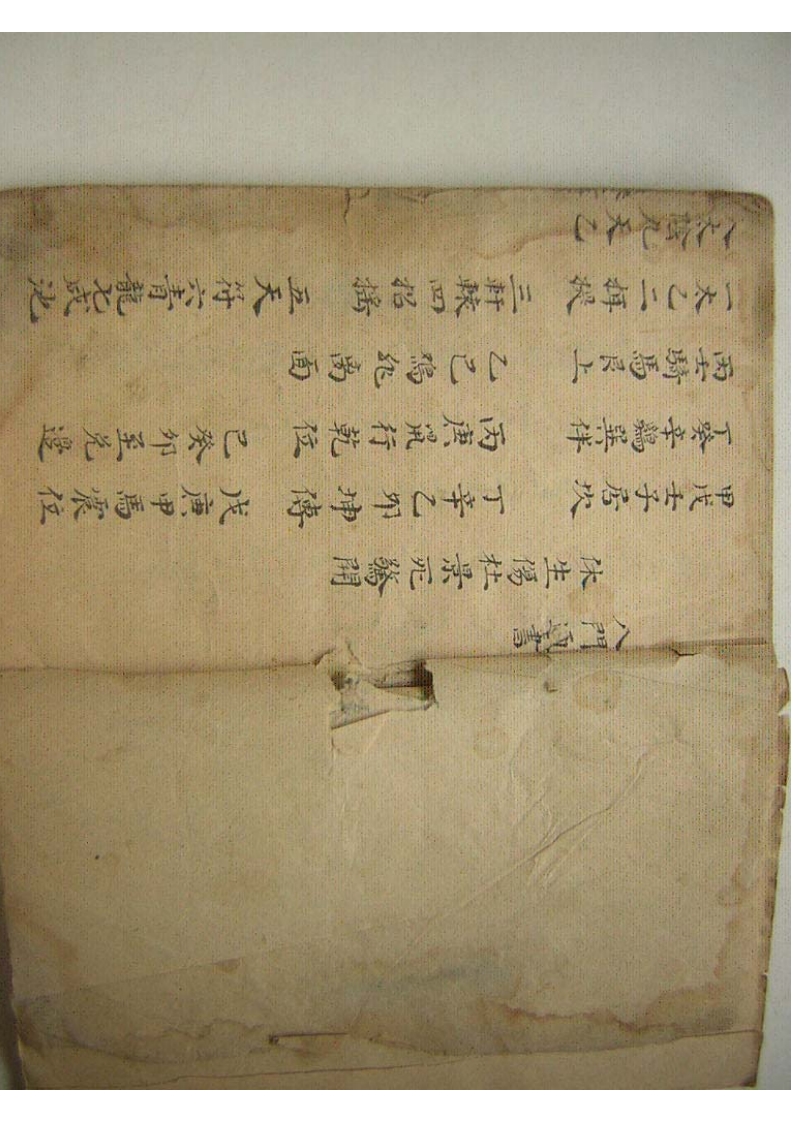 八門書
休生傷杜景死驚開
甲戊壬子居坎　丁辛乙卯坤傳　戊庚甲馬震位
丁癸辛鷄巽伴　丙庚鼠行乾位　己癸卯至兌邊
丙壬騎馬艮上　乙己鷄飛离面
一太乙二摂提　三軒轅四招搖　五天符六青龍七咸池
八太陰九天乙